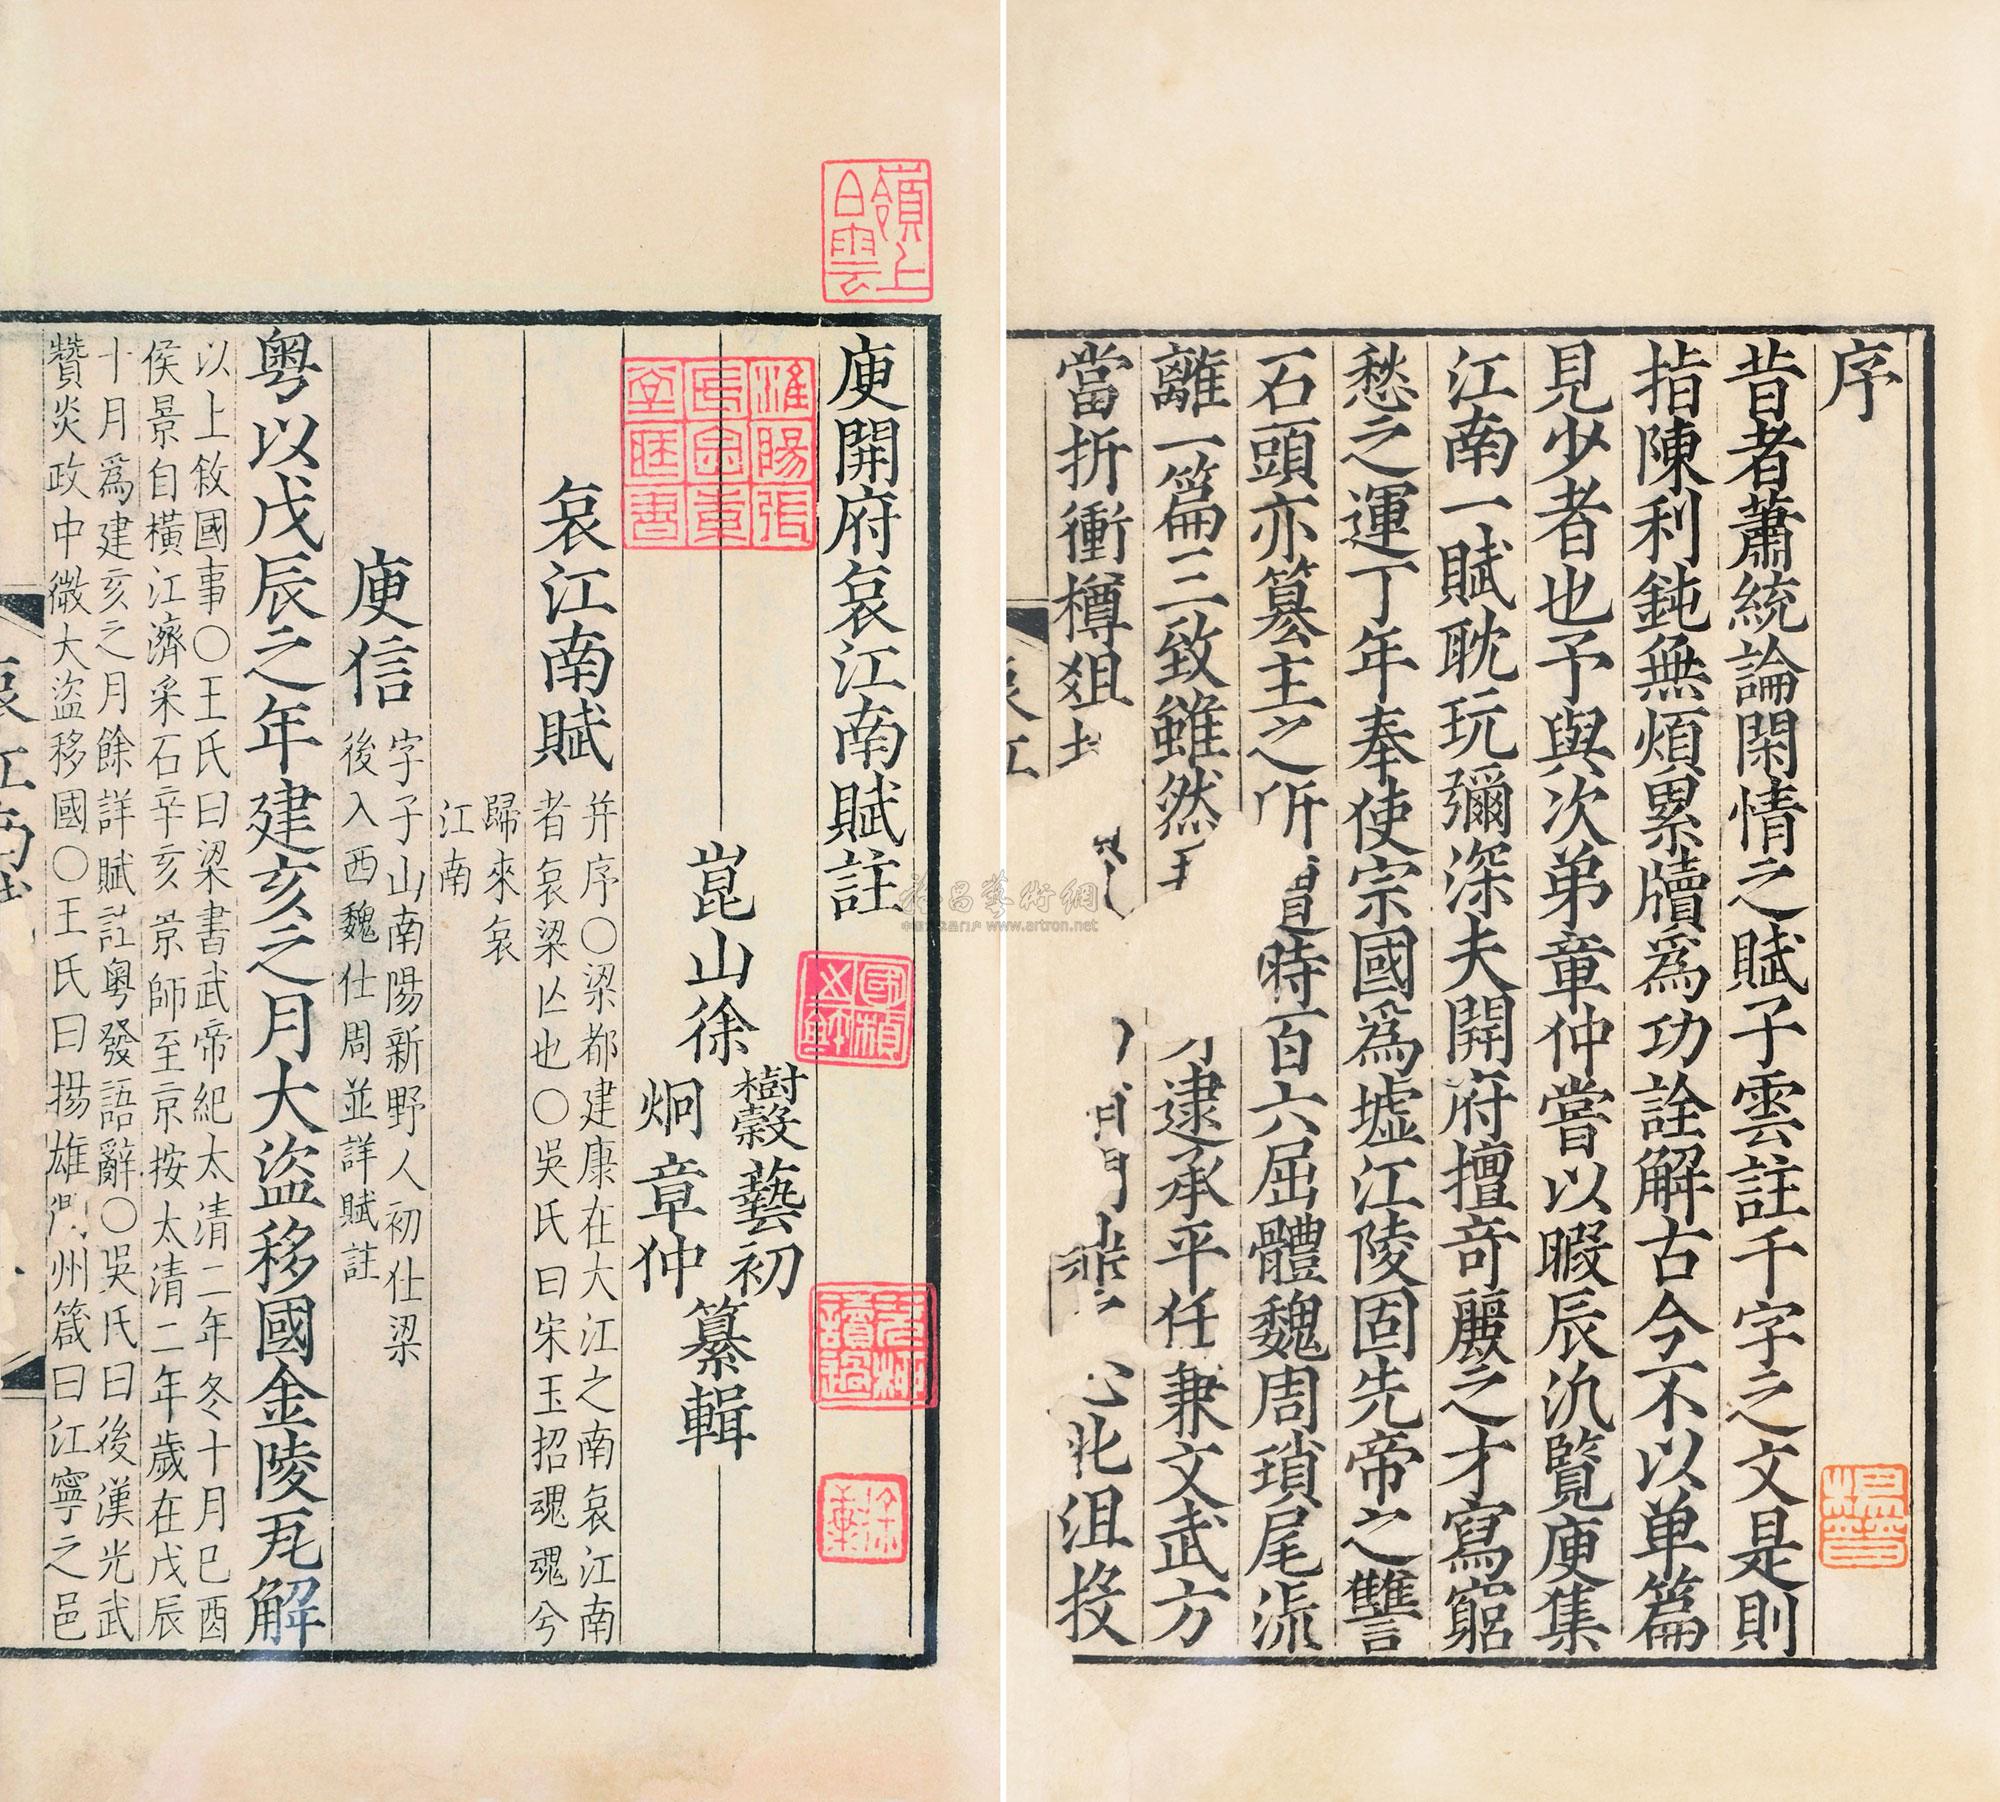 序
昔者蕭統論閑情之賦子雲註千字之文是則
指陳利鈍無煩累牘爲功詮解古今不以单篇
見少者也予與次弟章仲嘗以暇辰汎覽庾集
江南一賦耽玩彌深夫開府擅奇麗之才寫窮
愁之運丁年奉使宗國爲墟江陵固先帝之讐
石頭亦簒主之所
時百六屈體魏周瑣尾流
離一篇三致雖然
逮承平任兼文武方
當折衝樽俎
北沮投
庾開府哀江南賦註
崑山徐
樹穀藝初
炯章仲
纂輯
哀江南賦
并序○梁都建康在大江之南哀江南
者哀梁亾也○吳氏曰宋玉招魂魂兮
歸來哀
江南
庾信
字子山南陽新野人初仕梁
後入西魏仕周並詳賦註
粤以戊辰之年建亥之月大盜移國金陵瓦解
以上敘國事○王氏曰梁書武帝紀太清二年冬十月己酉
侯景自橫江濟采石辛亥景師至京按太清二年歲在戊辰
十月爲建亥之月餘詳賦註粤發語辭○吳氏曰後漢光武
贊炎政中微大盜移國○王氏曰揚雄州箴曰江寧之邑
哀江
嶺上白雲
www.artron.net